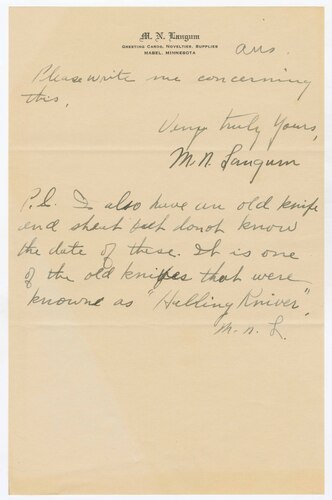 M. N. Langum
GREETING CARDS, NOVELTIES, SUPPLIES
MABEL, MINNESOTA
ans.
Please write me concerning
this.
Very truly Yours,
M. N. Langum
P.S. I also have an old knife
and sheat but do not know
the date of these. It is one
of the old knifes that were
knowne as "Hilling Kniver".
M. N. L.